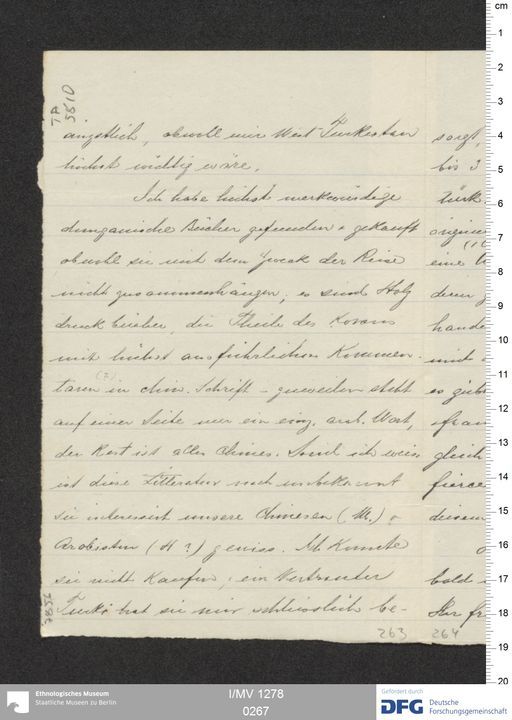 TA
5810
ängstlich, obwohl mir West-Turkestan
höchst wichtig wäre.
Ich habe höchst merkwürdige
dunganische Bücher gefunden & gekauft
obwohl sie mit dem Zweck der Reise
nicht zusammenhängen; es sind Holz
druckbücher, die Theile des Korans
mit höchst ausführlichen Kommen-
(?)
taren in chin. Schrift – zuweilen steht
auf einer Seite nur ein einz. arab. Wort,
der Rest ist alles Chines. Soviel ich weiss
ist diese Litteratur noch unbekannt
sie interessirt unsere Chinesen (M.) &
Arabisten (H?) gewiss. M. konnte
sie nicht kaufen; ein Verbrannter
Turki hat sie mir schliesslich be-
263
sorgt,
bis 3
türk
eine
dem
hande
und
es gibt
gleich
fierce
diesem
bald
Ihr
264
cm
1
2
3
4
5
6
7
8
9
10
11
12
13
14
15
16
17
18
19
20
Ethnologisches Museum
Staatliche Museen zu Berlin
I/MV 1278
0267
Gefördert durch
DFG Deutsche
Forschungsgemeinschaft